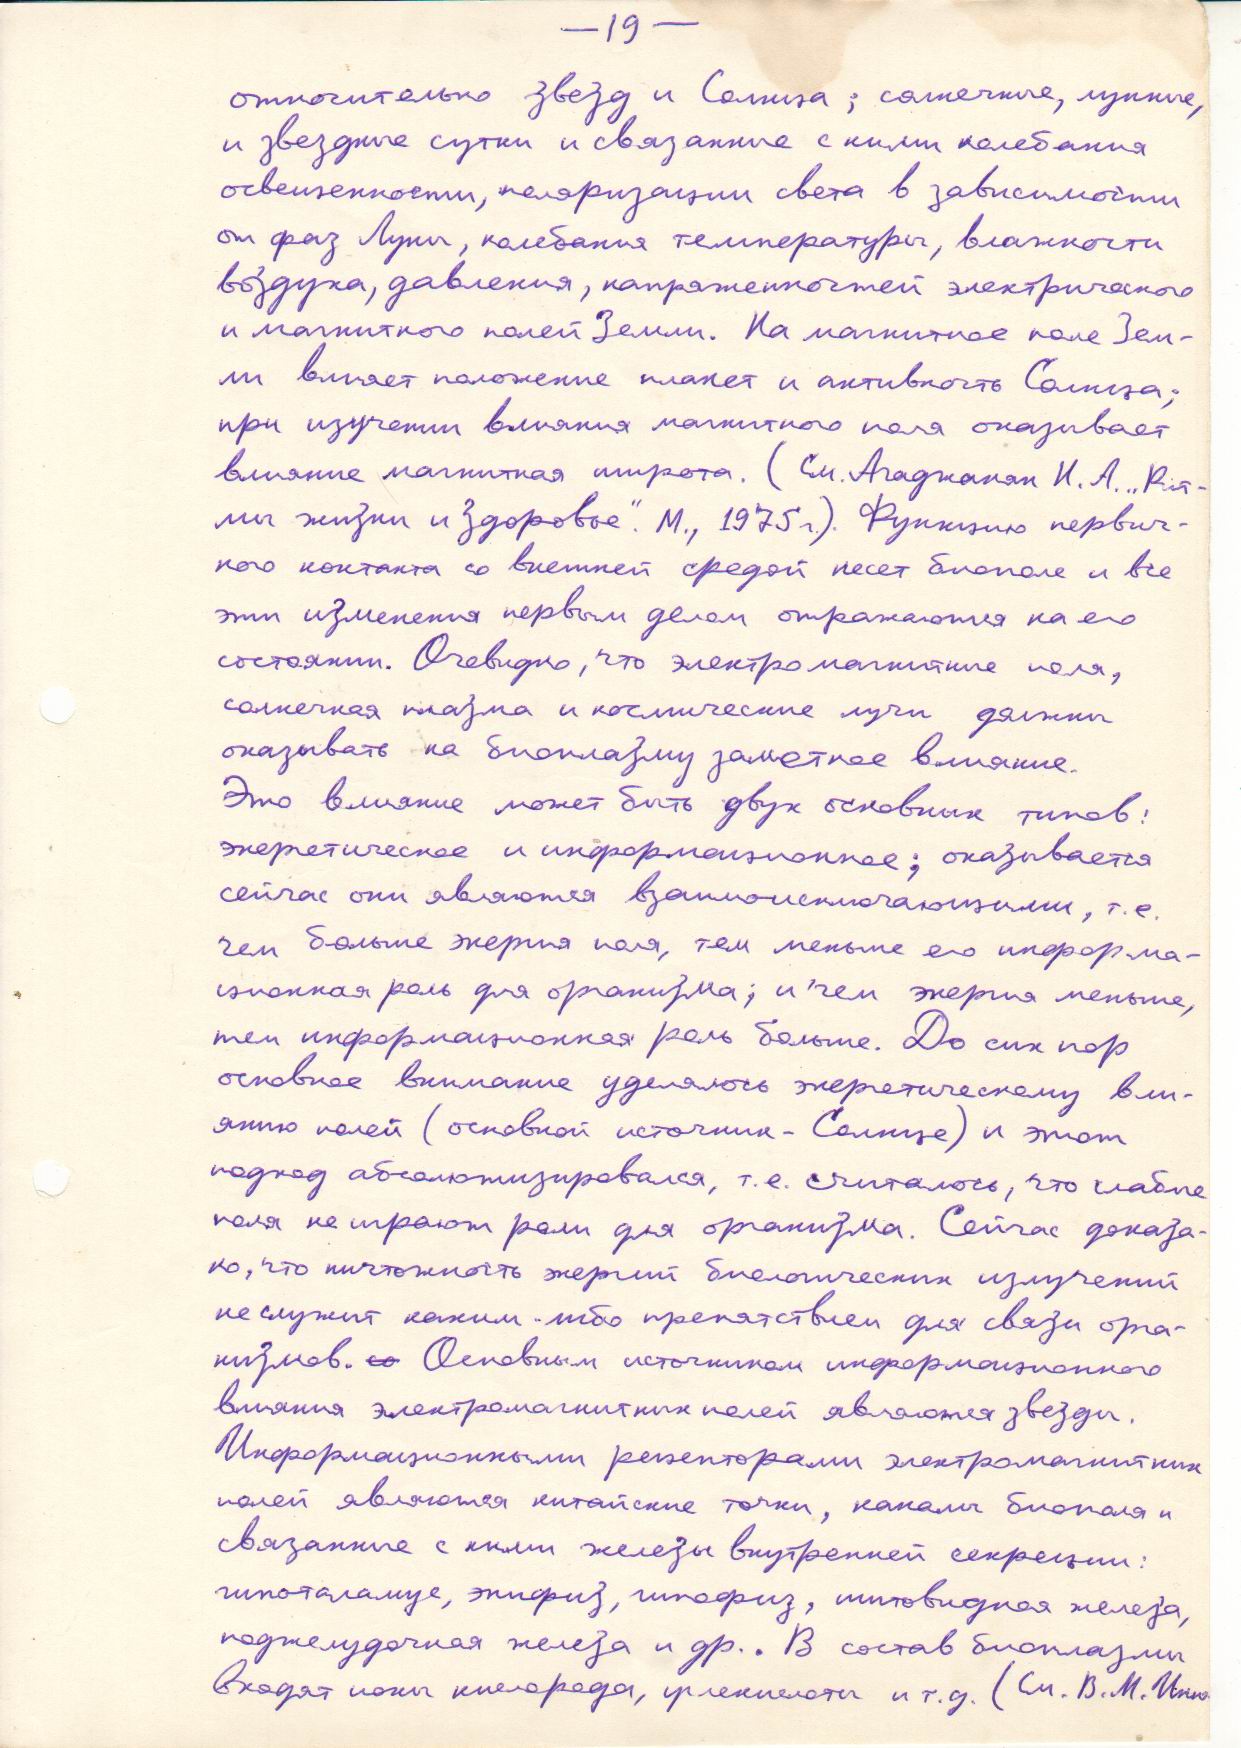 —19—
относительно звезд и Солнца; солнечные, лунные,
и звездные сутки и связанные с ними колебания
освещенности, поляризации света в зависимости
от фаз Луны, колебания температуры, влажности
воздуха, давления, напряженностей электрического
и магнитного полей Земли. На магнитное поле Зем-
ли влияет положение планет и активность Солнца;
при изучении влияния магнитного поля оказывает
влияние магнитная широта. (См. Агаджанян Н. А. „Рит-
мы жизни и здоровье". М., 1975 г.). Функцию первич-
ного контакта со внешней средой несет биополе и все
эти изменения первым делом отражаются на его
состоянии. Очевидно, что электромагнитные поля,
солнечная плазма и космические лучи должны
оказывать на биоплазму заметное влияние.
Это влияние может быть двух основных типов:
энергетическое и информационное; оказывается
сейчас они являются взаимоисключающими, т.е.
чем больше энергия поля, тем меньше его информа-
ционная роль для организма; и чем энергия меньше,
тем информационная роль больше. До сих пор
основное внимание уделялось энергетическому вли-
янию полей (основной источник - Солнце) и этот
подход абсолютизировался, т.е. считалось, что слабые
поля не играют роли для организма. Сейчас доказа-
но, что ничтожность энергий биологических излучений
не служит каким-либо препятствием для связи орга-
низмов. Основным источником информационного
влияния электромагнитных полей являются звезды.
Информационными рецепторами электромагнитных
полей являются китайские точки, каналы биополя и
связанные с ними железы внутренней секреции:
гипоталамус, эпифиз, гипофиз, щитовидная железа,
поджелудочная железа и др.. В состав биоплазмы
входят ионы кислорода, углекислоты и т.д. (См. В. М. Иню-